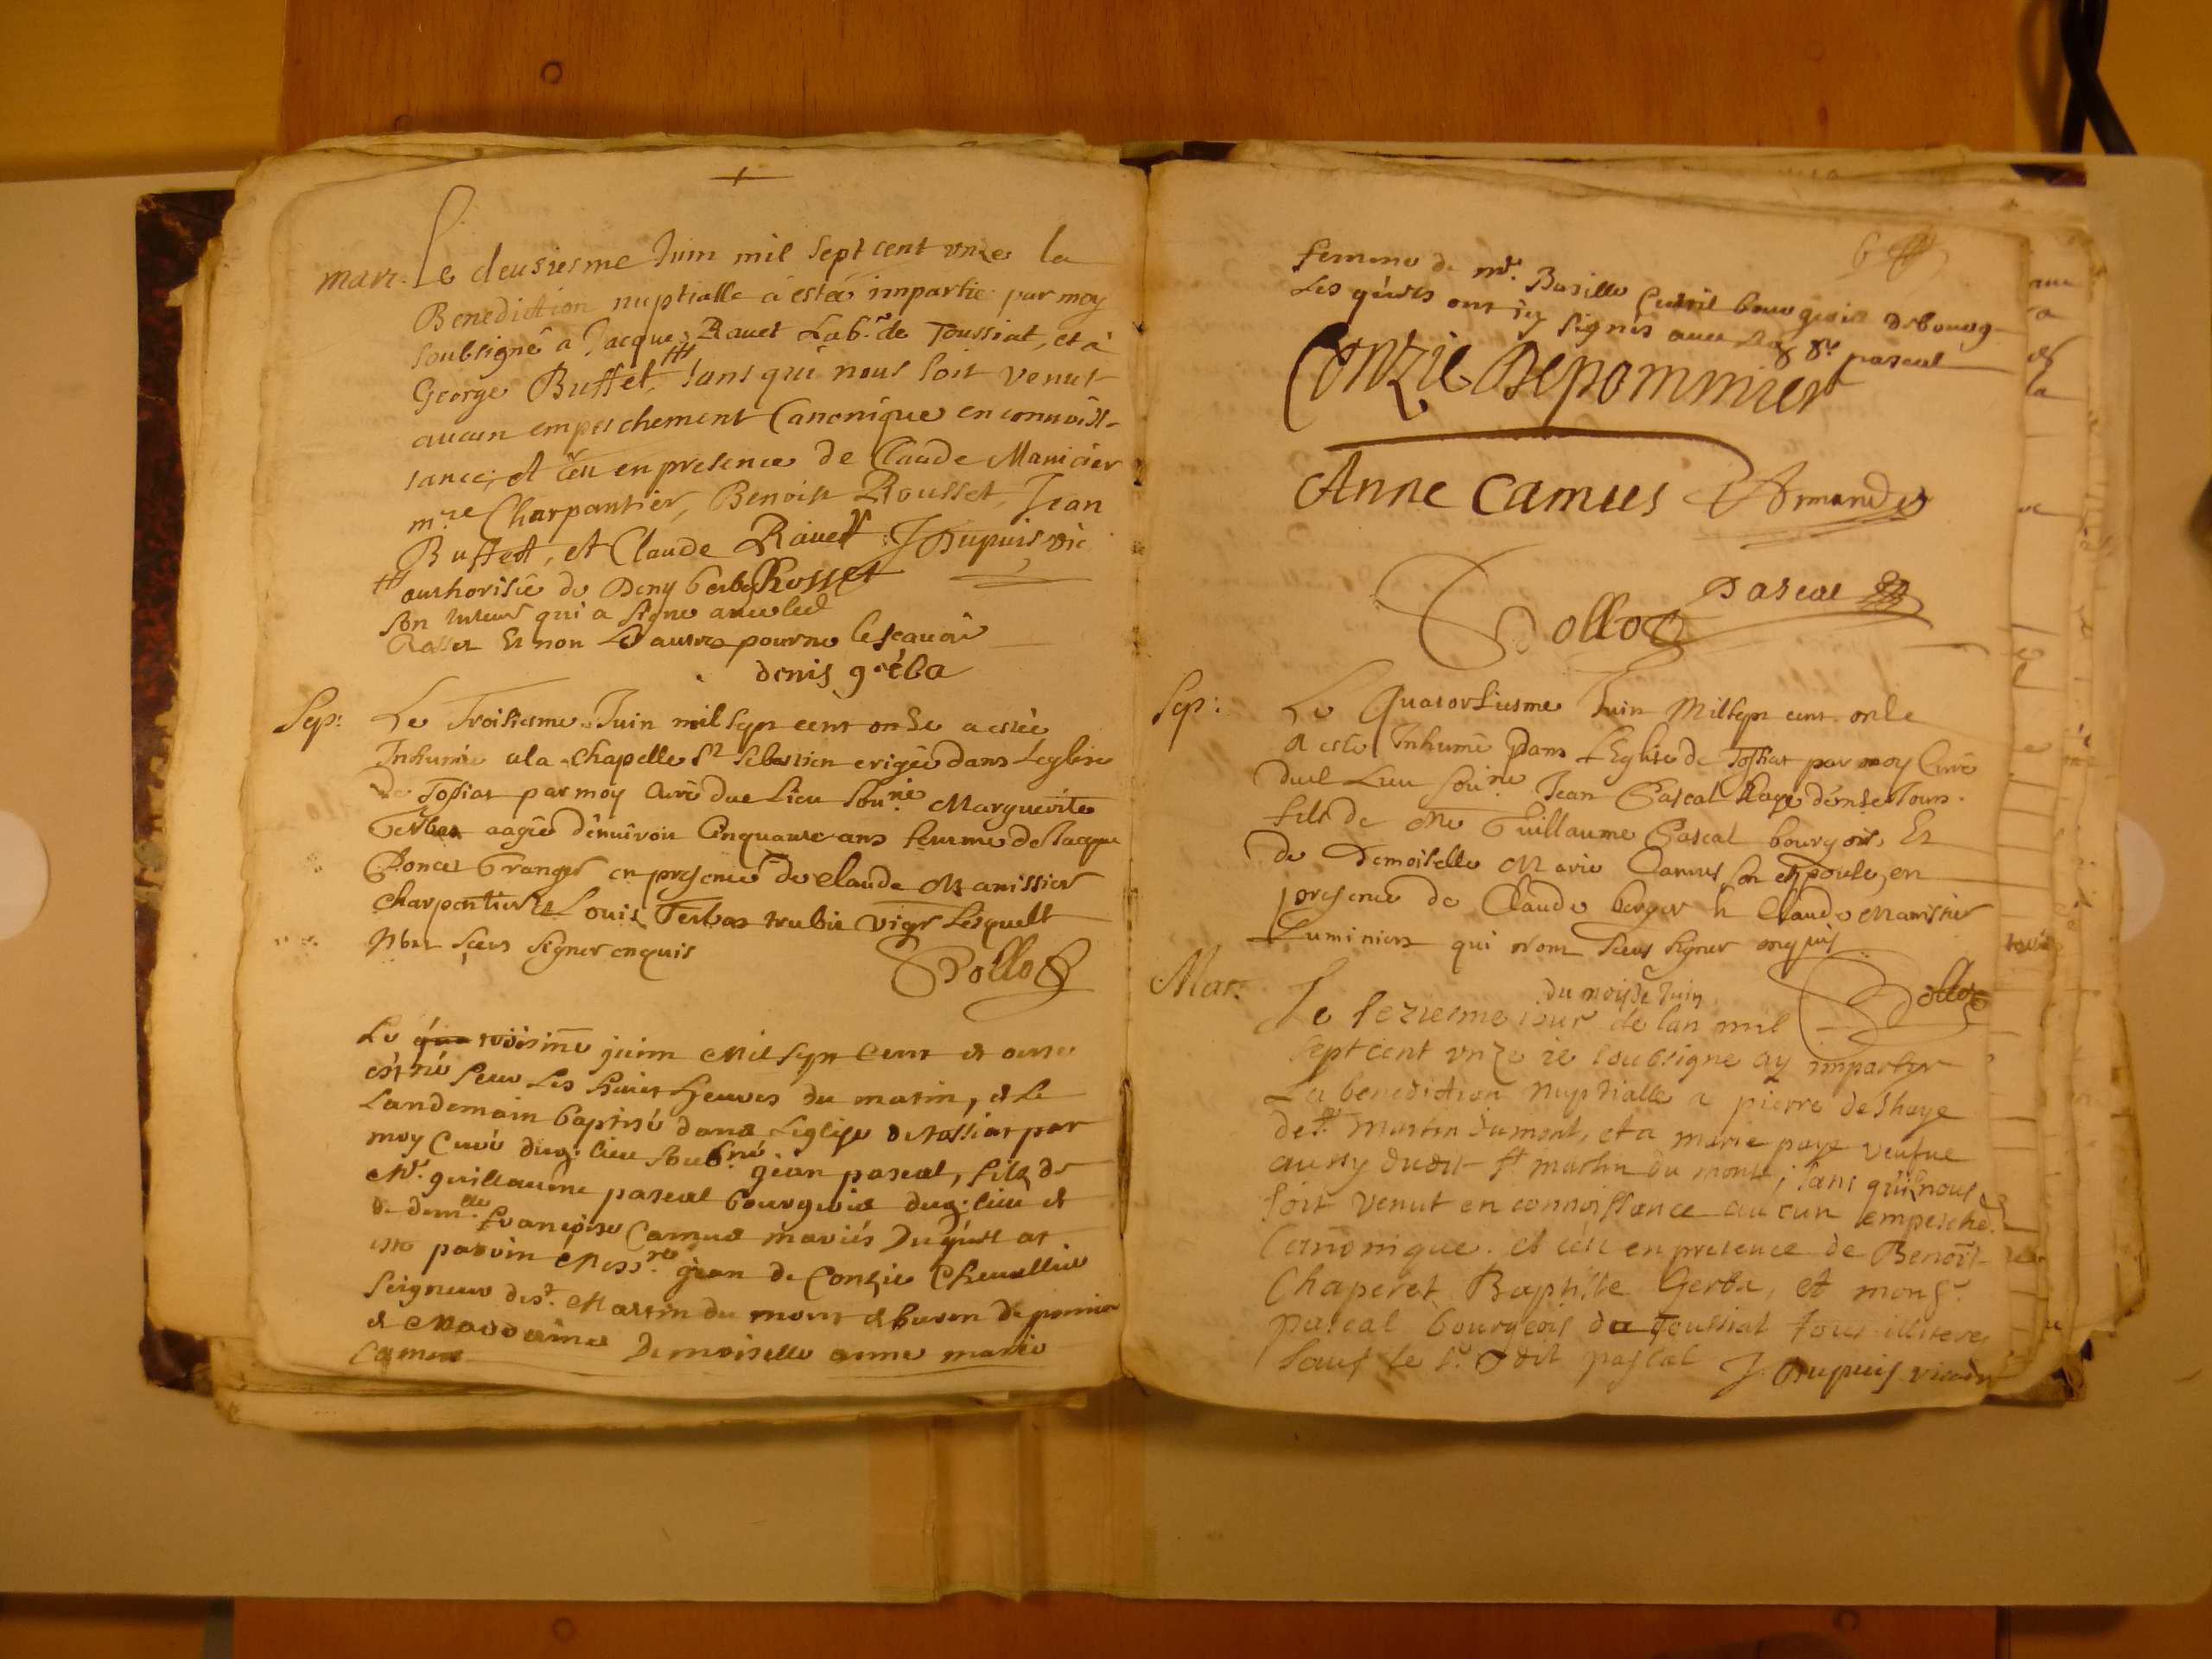 mari. Le deusiesme Juin mil sept cent unze la
Benediction nuptialle a estée impartie par moy
soubsigné a Jacque Ravet Lab.r de Toussiat, et a
George Buffet, ## sans qui nous soit venut
aucun empeschement Canonique en connoiss-
sance, et ceu en presence de Claude Manicier
m.re Charpantier, Benoist Rousset, Jean
Buffet, et Claude Ravet J Dupuis vic
## authorisée de Deny Rosset
son qui a signe avec led
Rosset Et non Les autres pour ne le scavoir
denis
Sep: Le Troisiesme Juin mil sept cent onze a estée
Inhumée a la Chapelle St Sebastien erigée dans Leglise
De Tossiat par moy Curé dud Lieu sou.né Marguerite
Gerbas aagée d'enuiron Cinquante ans femme de Jacque
Poncet Granger en presence de Claude Manissier
Charpentier Et Louis Gerbas vigr Lesquelt
N'ont sceus signer enquis
Dollo
Le juin Mil sept Cent et onse
est né seur Les huict heures du matin, et Le
Landemain baptisé dans Leglise de tossiat par
moy Curé dud. lieu soub.né jean pascal, fils de
Mr. guillaume pascal bourgeois dud. lieu et
de dem.lle françoise Camus mariés
este parrin Mess.re jean de Conzie Chevallier
seigneur de st. Martin du mont et baron de pomier
et Marraine Demoiselle anne marie
Camus
femme de mr. Basille Cursil bourgeois de bourg
Les qu'els ont icy signés avec Led Sr. pascal
Conzie Depommiers
Anne Camus Armand
pascal
Dollo
Sep: Le Quatorsiesme Juin Mil sept cent onze
a esté Inhumé dans L'Eglise de Tossiat par moy Curé
dud Lieu sou.né Jean Pascal Eagé d'onse Jours.
fils de Me Guillaume Pascal bourgois, Et
de Demoiselle Marie Camus son espouse, en
presence de Claude berger & Claude Manissier
Luminiers qui n'ont sceus signer enquis
Dollo
Mar: Le seziesme jour du mois de Juin de lan mil
sept cent unze ie soubsigne ay impartyr
La benediction nuptialle a pierre deshaye
de st. martin du mont, et a marie paye veufue
aussy dudit st. martin du mont; sans qu'il nous
soit venut en connoissance aucun empesche.t
Canonique. et ceu en presence de Benoît
Chaperet Baptiste Gerba, et mons.r
pascal bourgeois de Toussiat tous illiterez
sauf le s.r dit pascal J. Dupuis vicaire